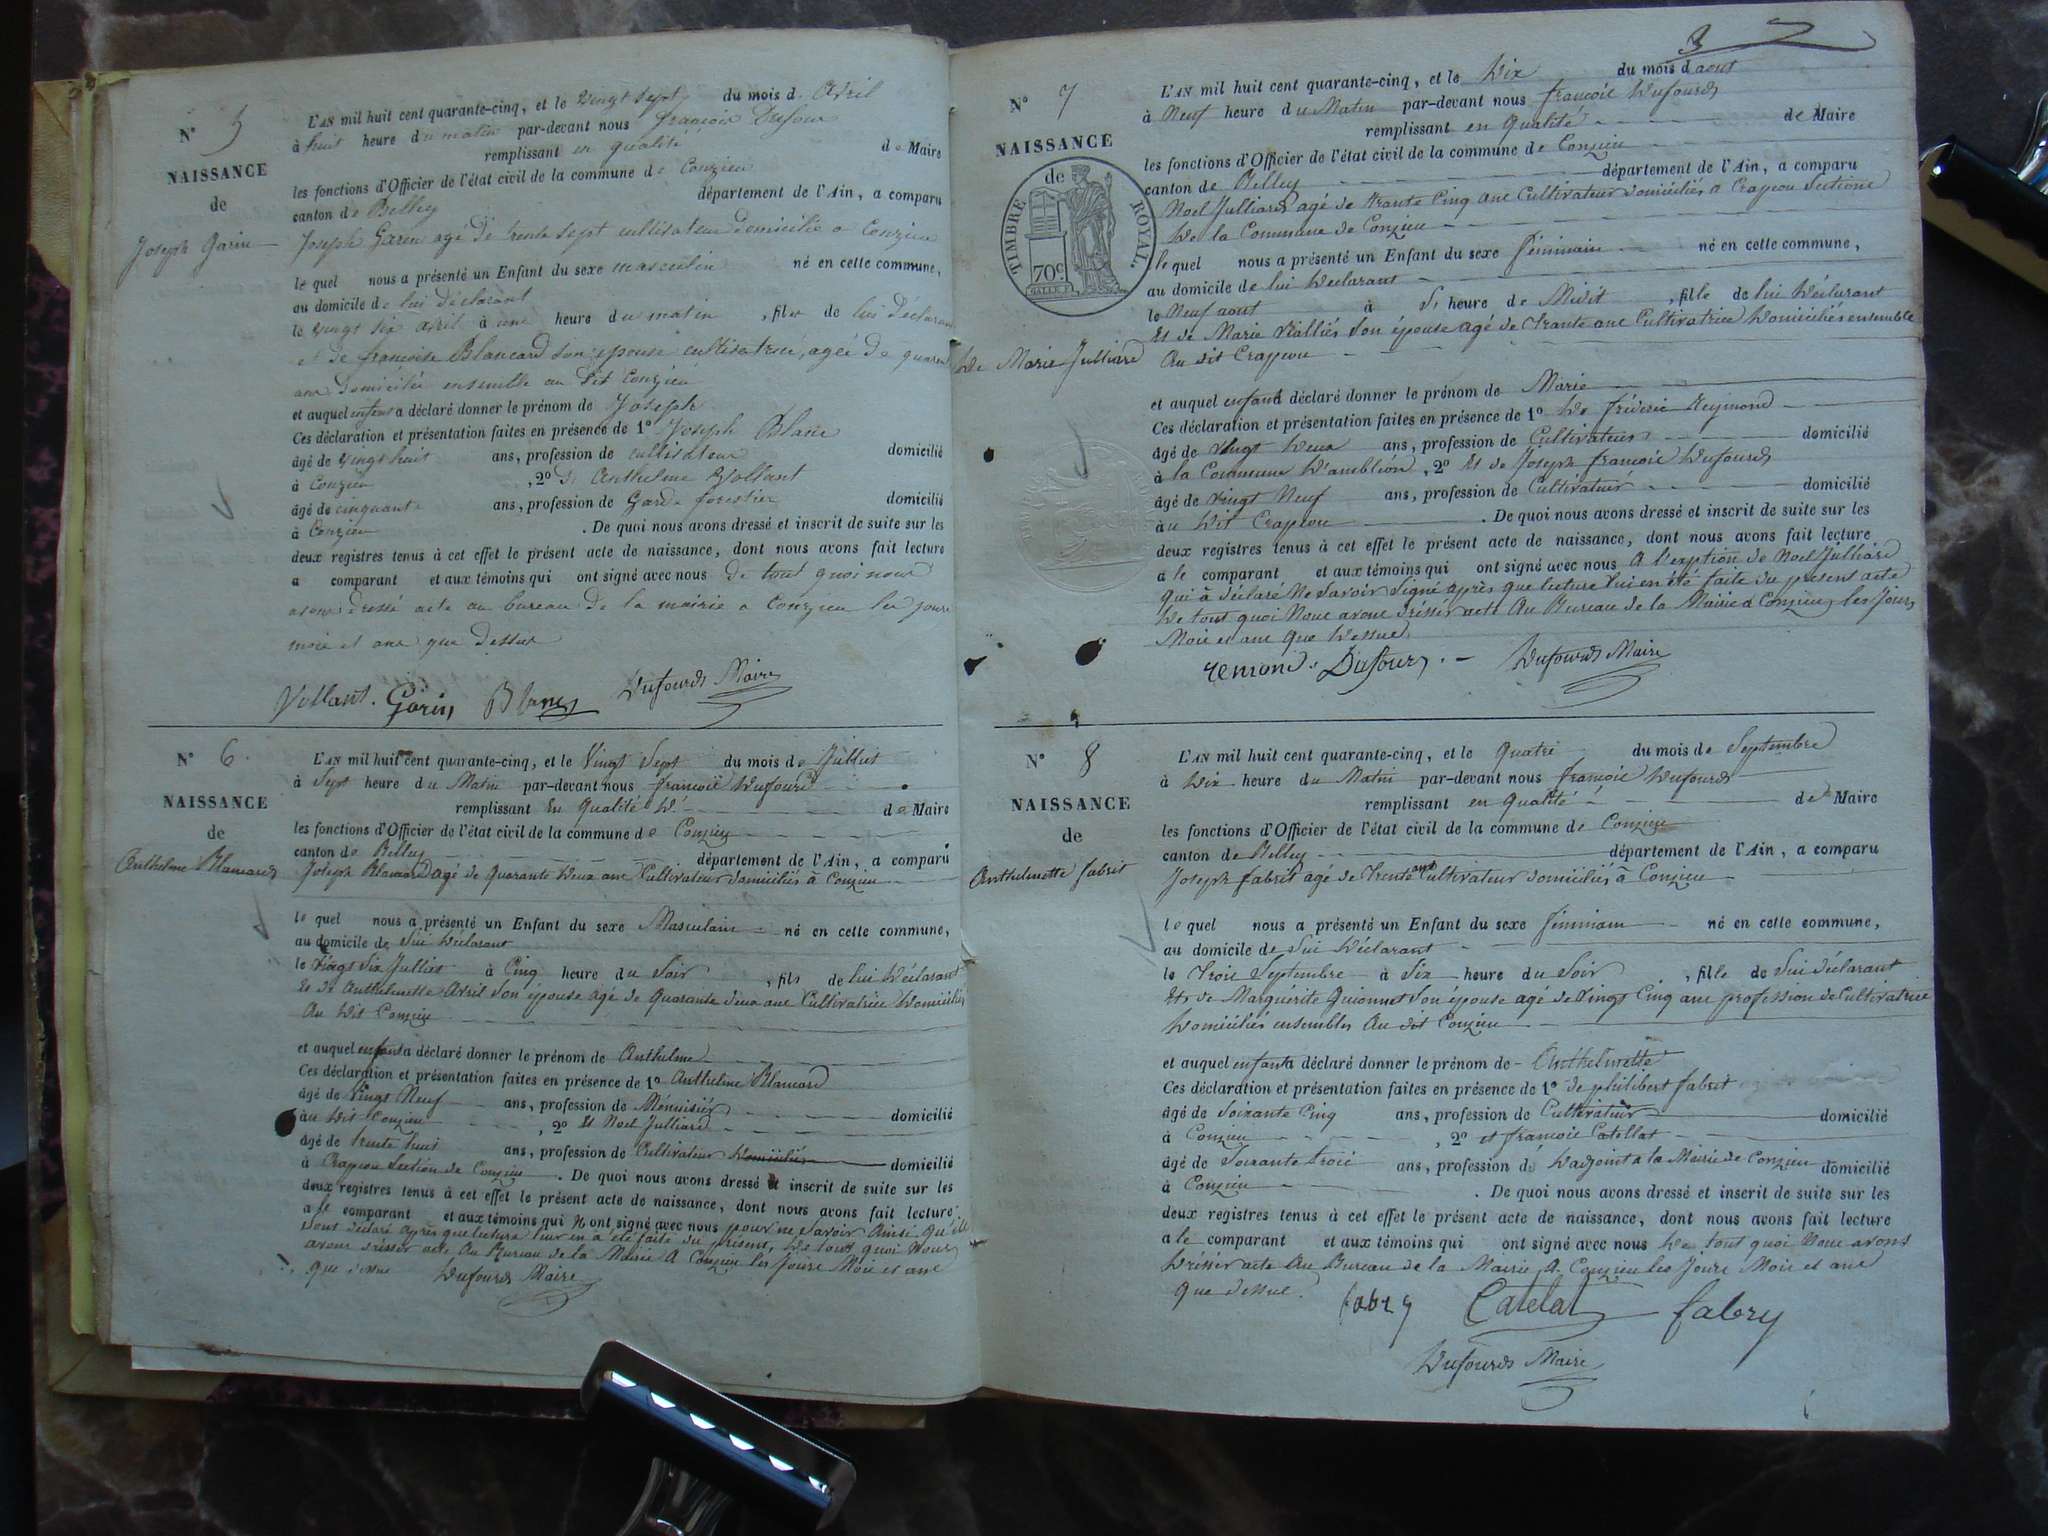 N° 5
NAISSANCE
de
Joseph Garin
L'AN mil huit cent quarante-cinq, et le vingt sept du mois d. Avril
à huit heure du matin par-devant nous françois Dufour
remplissant en qualité de Maire
les fonctions d'Officier de l'état civil de la commune de Conzieu
canton de Belley département de l'Ain, a comparu
Joseph Garin agé de trente sept cultivateur domicilié a Conzieu
le quel nous a présenté un Enfant du sexe masculin né en cette commune,
au domicile de lui déclarant
le vingt six avril à une heure du matin, fils de lui déclarant
et de françoise Blancard son épouse cultivatrice, agée de quarante
ans domiciliés ensemble au dit Conzieu
et auquel enfant a déclaré donner le prénom de Joseph
Ces déclaration et présentation faites en présence de 1° Joseph Blanc
âgé de vingt huit ans, profession de cultivateur domicilié
à Conzieu, 2° d' Anthelme Vollant
âgé de cinquante ans, profession de Garde forestier domicilié
à Conzieu. De quoi nous avons dressé et inscrit de suite sur les
deux registres tenus à cet effet le présent acte de naissance, dont nous avons fait lecture
a comparant et aux témoins qui ont signé avec nous de tout quoi nous
avons dressé acte au bureau de la mairie a Conzieu les jours
mois et ans que dessus
Vollant. Garin Blanc Dufourd Maire
N° 6.
NAISSANCE
de
Anthelme Blancard
L'AN mil huit cent quarante-cinq, et le Vingt Sept du mois de Juillet
à Sept heure du Matin par-devant nous françois Dufourd
remplissant En Qualité D' de Maire
les fonctions d'Officier de l'état civil de la commune de Conzieu
canton de Belley département de l'Ain, a comparu
Joseph Blancard agé de Quarante Deux ans Cultivateur domiciliés à Conzieu
le quel nous a présenté un Enfant du sexe Masculain né en cette commune,
au domicile de Lui Déclarant
le Vingt Six Juillet à Cinq heure du Soir, fils de lui Déclarant
Et de Anthelmette Avril Son épouse agé de Quarante deux ans Cultivatrice Domiciliés
Au Dit Conzieu
et auquel enfant a déclaré donner le prénom de Anthelme
Ces déclaration et présentation faites en présence de 1° Anthelme Blancard
âgé de Vingt Neuf ans, profession de Ménuisier domicilié
àu Dit Conzieu, 2° Et Noel Julliard
âgé de trente huit ans, profession de Cultivateur domicilié
à Crapeou Section de Conzieu. De quoi nous avons dressé et inscrit de suite sur les
deux registres tenus à cet effet le présent acte de naissance, dont nous avons fait lecture
a le comparant et aux témoins qui N ont signé avec nous pour ne Savoir Ainsi qu'ils
dont déclaré après que lecture leur en à été faite du présent, De tout quoi Nous
avons drésser acte Au Bureau de la Mairie A Conzieu les Jours Mois et ans
que dessus Dufourd Maire
3
N° 7
NAISSANCE
de
TIMBRE ROYAL.
70c
de Marie Julliard
L'AN mil huit cent quarante-cinq, et le Dix du mois d aout
à Neuf heure du Matin par-devant nous françois Dufourd
remplissant en Qualité de Maire
les fonctions d'Officier de l'état civil de la commune de Conzieu
canton de Belley département de l'Ain, a comparu
Noel Julliard agé de trante Cinq ans Cultivateur domiciliés a Crapeou Sectione
De la Commune de Conzieu
le quel nous a présenté un Enfant du sexe féminain né en cette commune,
au domicile de lui Déclarant
le Neuf aout à heure de Midit, fille de lui Déclarant
Et de Marie Son épouse agé de trante ans Cultivatrice Domiciliés ensemble
Au dit Crapeou
et auquel enfant déclaré donner le prénom de Marie
Ces déclaration et présentation faites en présence de 1° De fréderic Reymond
âgé de Vingt Deux ans, profession de Cultivateur domicilié
à la Commune D'ambléon, 2° Et de Joseph françois Dufourd
âgé de Vingt Neuf ans, profession de Cultivateur domicilié
àu Dit Crapeou. De quoi nous avons dressé et inscrit de suite sur les
deux registres tenus à cet effet le présent acte de naissance, dont nous avons fait lecture
a le comparant et aux témoins qui ont signé avec nous A l'exption de Noel Julliard
qui à déclaré Ne Savoir Signé après que lecture lui en été faite du présent acte
De tout quoi Nous avons drésser acte Au Bureau de la Mairie a Conzieu les Jours
Mois et ans Que Dessus
remond. Dufour. Dufourd Maire
N° 8
NAISSANCE
de
Anthelmette fabrit
L'AN mil huit cent quarante-cinq, et le Quatre du mois de Septembre
à Dix heure du Matin par-devant nous françois Dufourd
remplissant en Qualité de Maire
les fonctions d'Officier de l'état civil de la commune de Conzieu
canton de Belley département de l'Ain, a comparu
Joseph fabrit agé de Trente ans Cultivateur domiciliés à Conzieu
le quel nous a présenté un Enfant du sexe féminain né en cette commune,
au domicile de Lui Déclarant
le Trois Septembre à Six heure du Soir, fille de Lui déclarant
Et de Marguérite Guionnet Son épouse agé de Vingt Cinq ans profession de Cultivatrice
Domiciliés ensembles Au dit Conzieu
et auquel enfant a déclaré donner le prénom de Anthelmette
Ces déclaration et présentation faites en présence de 1° de philibert fabrit
âgé de Soixante Cinq ans, profession de Cultivateur domicilié
à Conzieu, 2° et françois Catellat
âgé de Soixante trois ans, profession de D'adjoint a la Mairie de Conzieu domicilié
à Conzieu. De quoi nous avons dressé et inscrit de suite sur les
deux registres tenus à cet effet le présent acte de naissance, dont nous avons fait lecture
a le comparant et aux témoins qui ont signé avec nous De tout quoi Nous avons
Drésser acte Au Bureau de la Mairie A Conzieu les Jours Mois et ans
Que dessus. fabry Catelat fabry
Dufourd Maire